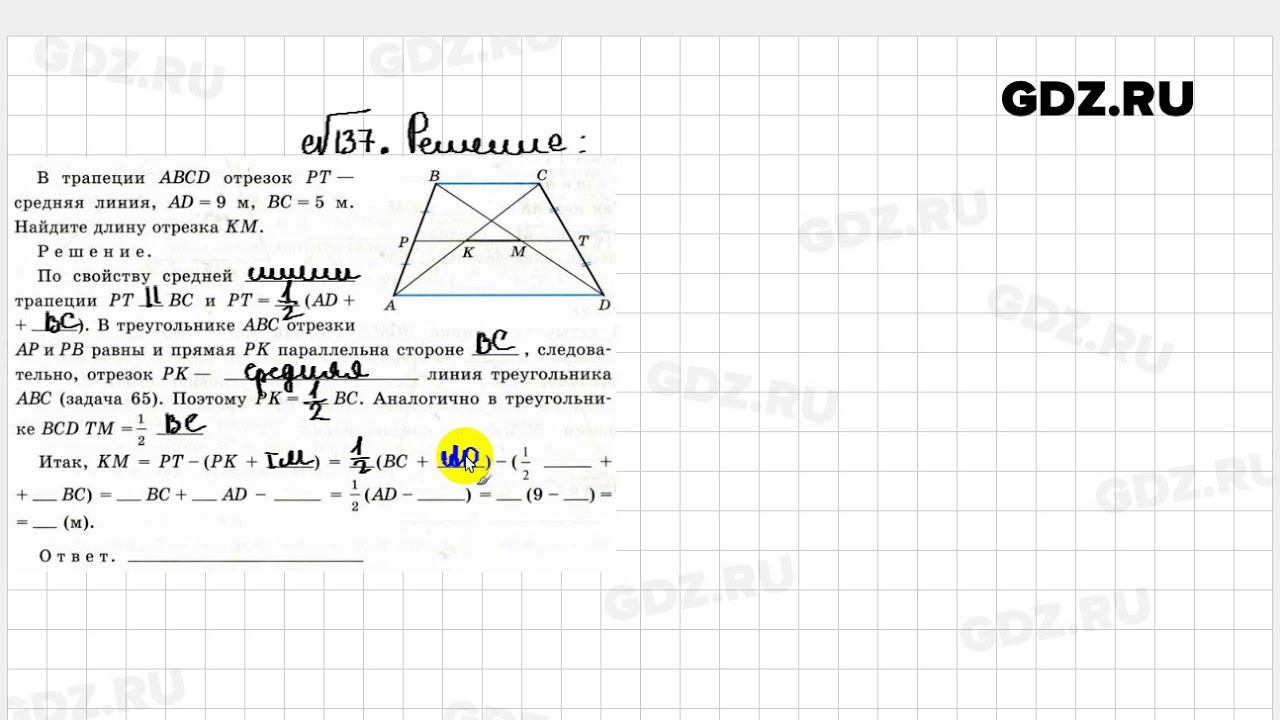 GDZ.RU
GDZ.RU
GDZ.RU
№137. Решение:
В трапеции ABCD отрезок PT —
средняя линия, AD = 9 м, BC = 5 м.
Найдите длину отрезка KM.
B
C
P
K
M
T
A
D
Решение.
По свойству средней линии
трапеции PT || BC и PT = 1/2 (AD +
+ BC). В треугольнике ABC отрезки
AP и PB равны и прямая PK параллельна стороне BC, следова-
тельно, отрезок PK — средняя линия треугольника
ABC (задача 65). Поэтому PK = 1/2 BC. Аналогично в треугольни-
ке BCD TM = 1/2 BC
Итак, KM = PT – (PK + TM) = 1/2 (BC + ___) – (1/2 ___ +
+ ___ BC) = ___ BC + ___ AD – ___ = 1/2 (AD – ___) = ___ (9 – ___) =
= ___ (м).
Ответ. ___
GDZ.RU
GDZ.RU
GDZ.RU
GDZ.RU
GDZ.RU
GDZ.RU
GDZ.RU
GDZ.RU